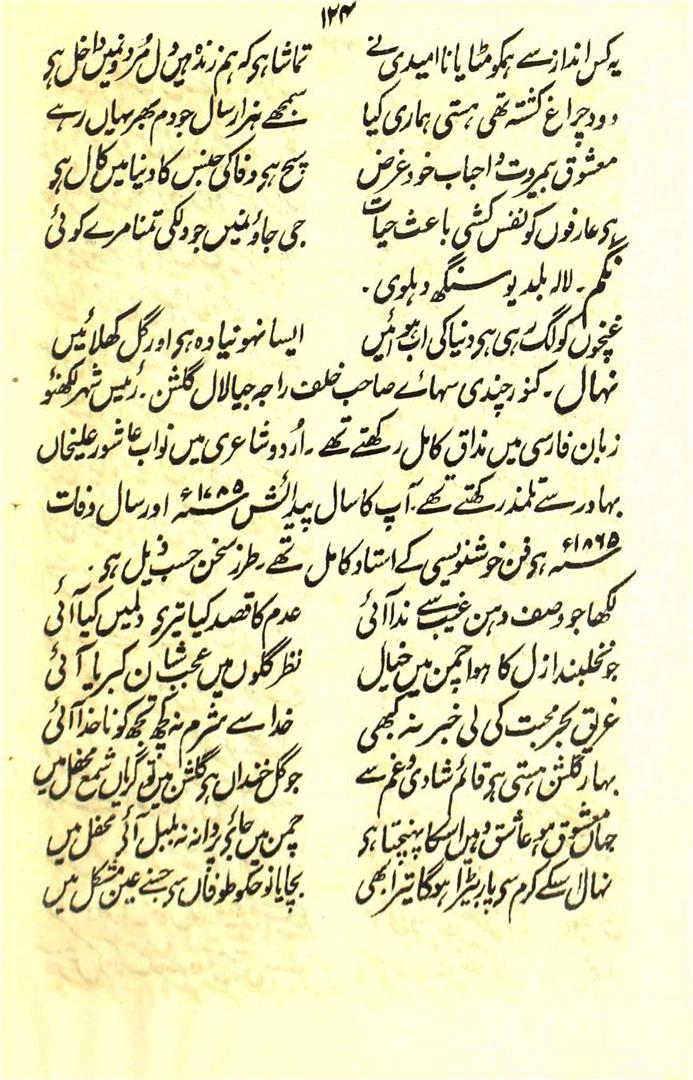 ۱۲۴
یہ کس انداز سے ہمکو مٹایا ناامیدی نے تماشا ہی کہ ہم زندہ ہیں دل مُردونمیں داخل ہی
دود چراغ کشتہ تھی ہستی ہماری کیا سمجھے ہزار سال جو دم بھر یہاں رہے
معشوق بیمروت و احباب خود غرض سچ ہی وفا کی جنس کا دنیا میں کال ہی
ہی عارفوں کو نفس کشی باعث حیات جی جاؤنمیں جو دلکی تمنا مرے کوئی
نگم ۔ لالہ بلدیو سنگھ دہلوی ۔
غنچوں کو لگ رہی ہی دنیا کی اب ہوائیں ایسا نہو نیا وہ ہی اور گل کھلائیں
نہال ۔ کنور چندی سہائے صاحب خلف راجہ جیالال گلشن ۔ رئیس شہر لکھنؤ
زبان فارسی میں مذاق کامل رکھتے تھے ۔ اُردو شاعری میں نواب عاشور علیخاں
بہادر سے تلمذ رکھتے تھے ۔ آپ کا سال پیدائش ۱۷۸۵ء اور سال وفات
۱۸۶۵ء ہی فن خوشنویسی کے استاد کامل تھے ۔ طرز سخن حسب ذیل ہی ۔
لکھا جو وصف دہن غیب سے ندا آئی عدم کا قصد کیا تیری دلمیں کیا آئی
جو نخلبند ازل کا ہوا چمن میں خیال نظر گلوں میں عجب شان کبریا آئی
غریق بحر محبت کی لی خبر نہ کبھی خدا سے شرم نہ کچھ تجھ کو ناخدا آئی
بہار گلشن ہستی ہی قائم شادی و غم سے جو گل خنداں ہی گلشن میں تو گریاں شمع محفل میں
جہاں معشوق ہو عاشق وہیں اسکا پہنچتا ہی چمن میں جائی پروانہ نہ بلبل آئی محفل میں
نہال اسکے کرم سی پار بیڑا ہوگا تیرا بھی بچایا نوح کو طوفاں سی جسنے عین مشکل میں